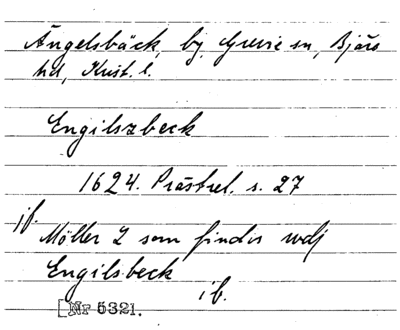 Ängelsbäck, by, Grevie sn, Bjäre
hd, Krist. l.
Engilszbeck
1624. Prästrel. s. 27
jf.
Möller 2 som findis wdj
Engilsbeck
ib.
[Nr 5321.